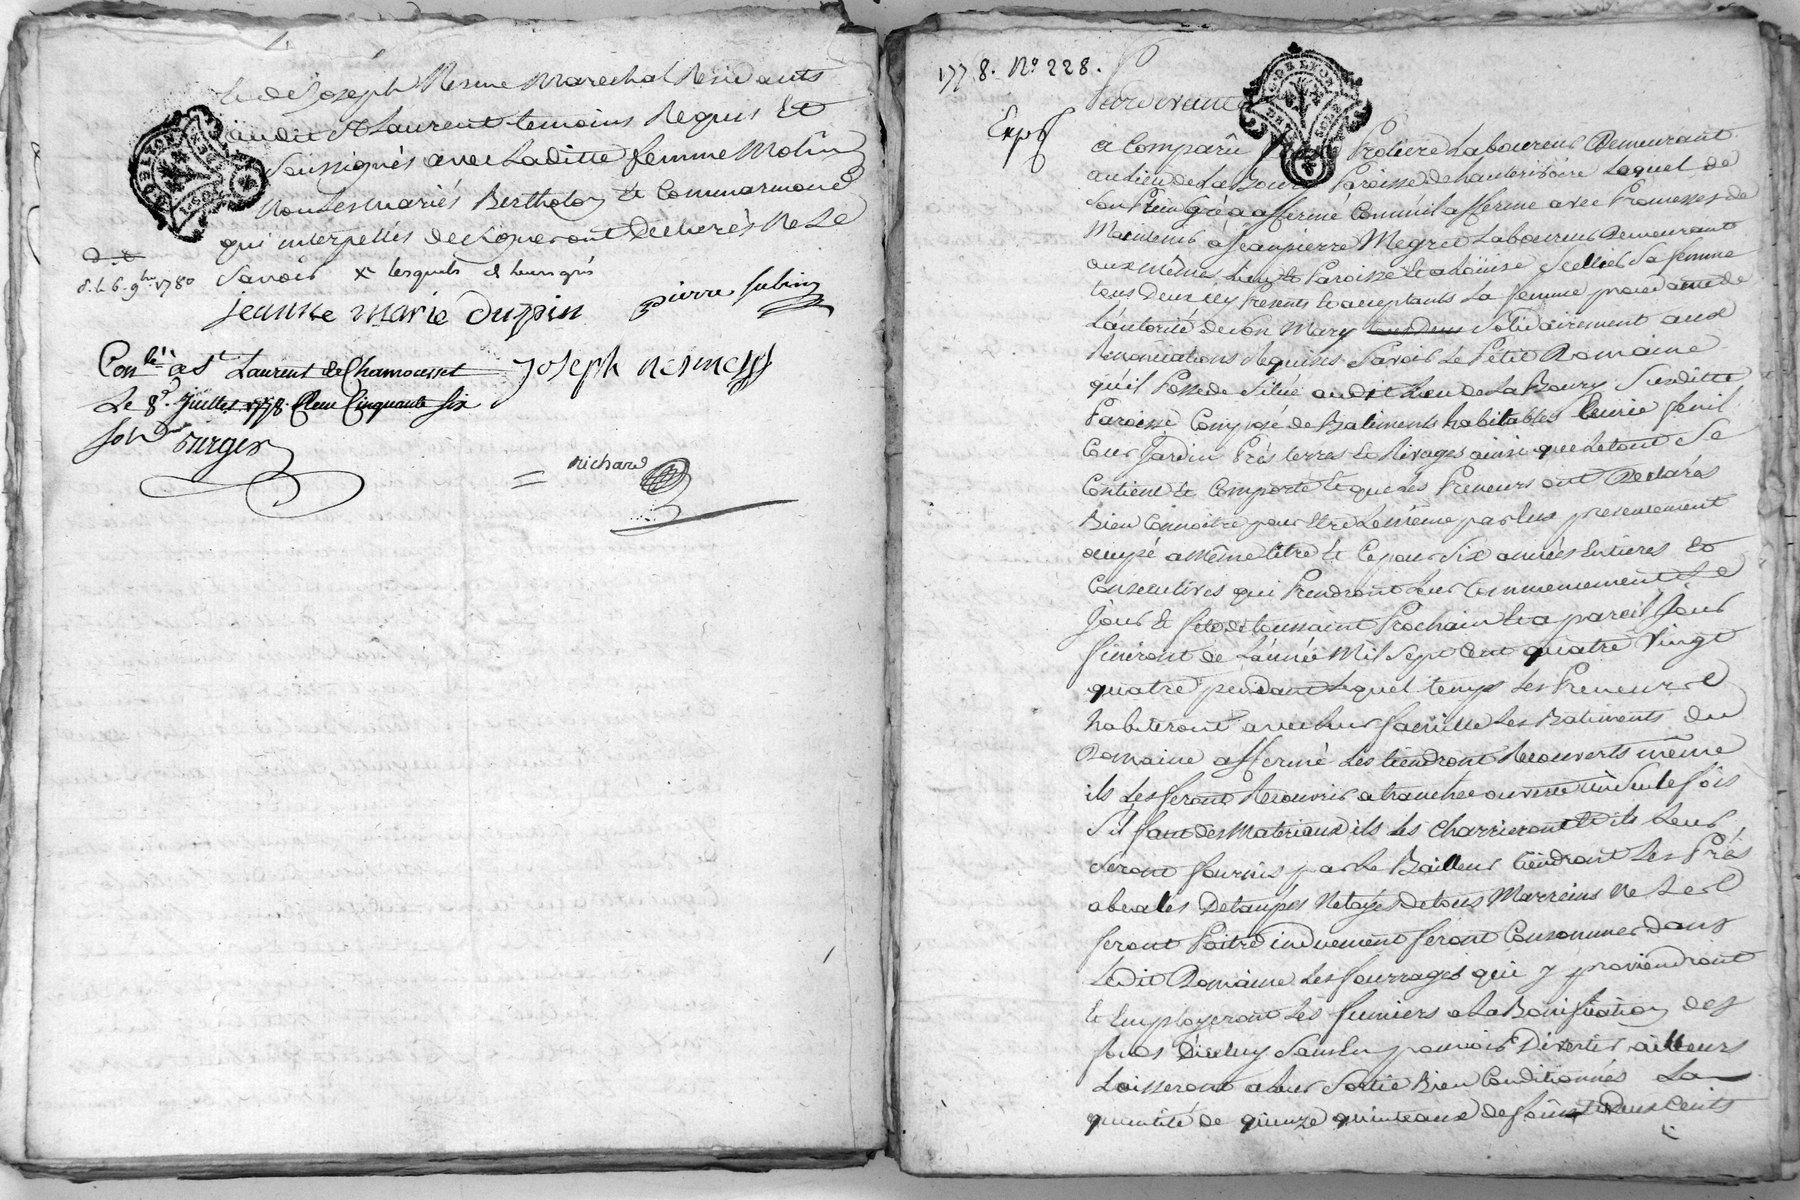 Joseph Nesme Marechal Residants
audit St Laurent temoins Requis Et
Soussignés avec Laditte femme Molin
Non Les mariés Bertholoy Et Commarmond
qui interpellés de Signer ont Declarés Ne Le
Savoir x lesquels
d. l. 6. 9bre 1780
jeanne marie Dupin
pierre subrin
Conlé à St Laurent de Chamousset
joseph nesme
Le 8e Juillet 1778. Reçu Cinquante six
sols
richard
1778. No 228.
Pardevant
Exp
DE LYON
a Comparû Protiere Laboureur Demeurant
au Lieu de La Boury Paroisse de hauterivoire Lequel de
Son Plein Gré a affermé Comme il afferme avec Promesses de
Maintenir a Jean pierre Megret Laboureur Demeurant
aux même Lieu Et Paroisse Et a Loüise Sa femme
tous Deux icy Presents Et acceptants La femme procedante de
L'autorité de Son Mary Solidairement aux
Renonciations Requises Savoir Le Petit Domaine
qu'il Possede Situé audit Lieu de La Boury Susditte
Paroisse Composé de Batiments habitables Ecurie fenil
Cour Jardin Prés terres Et Rivages ainsi que Le tout Se
Contient Et Comporte Et que Les Preneurs ont Declarés
Bien Connoitre pour Etre Le même par Eux presentement
occupé a même titre Et Ce pour Six années Entieres Et
Consecutives qui Prendront Leur Commencement Le
Jour Et fete de toussaint Prochain Et a pareil Jour
finiront de L'année Mil Sept Cent quatre Vingt
quatre pendant Lequel temps Les Preneurs
habiteront avec Leur famille Les Batiments du
Domaine affermé Les tiendront Recouverts même
ils Les feront Recouvrir a tranchée ouverte une Seule fois
S'il faut des Materiaux ils Les Charrieront Et ils Leur
Seront fournis par Le Bailleur tiendront Les Prés
abealés Detaupés Netoyés de tous Marreins Ne Les
feront Paitre induement feront Consommer dans
Ledit Domaine Les fourrages qui y proviendront
Et Employeront Les fumiers a La Bonification des
fonds D'icelluy Sans En pouvoir Divertir ailleurs
Laisseront a Leur Sortie Bien Conditionnés La
quantité de quinze quinteaux de foin Et Deux Cents